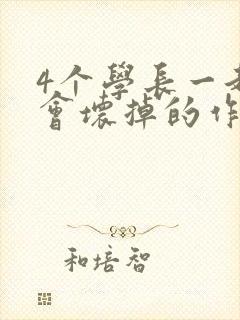 4个學長一
會壞掉的作
和培智